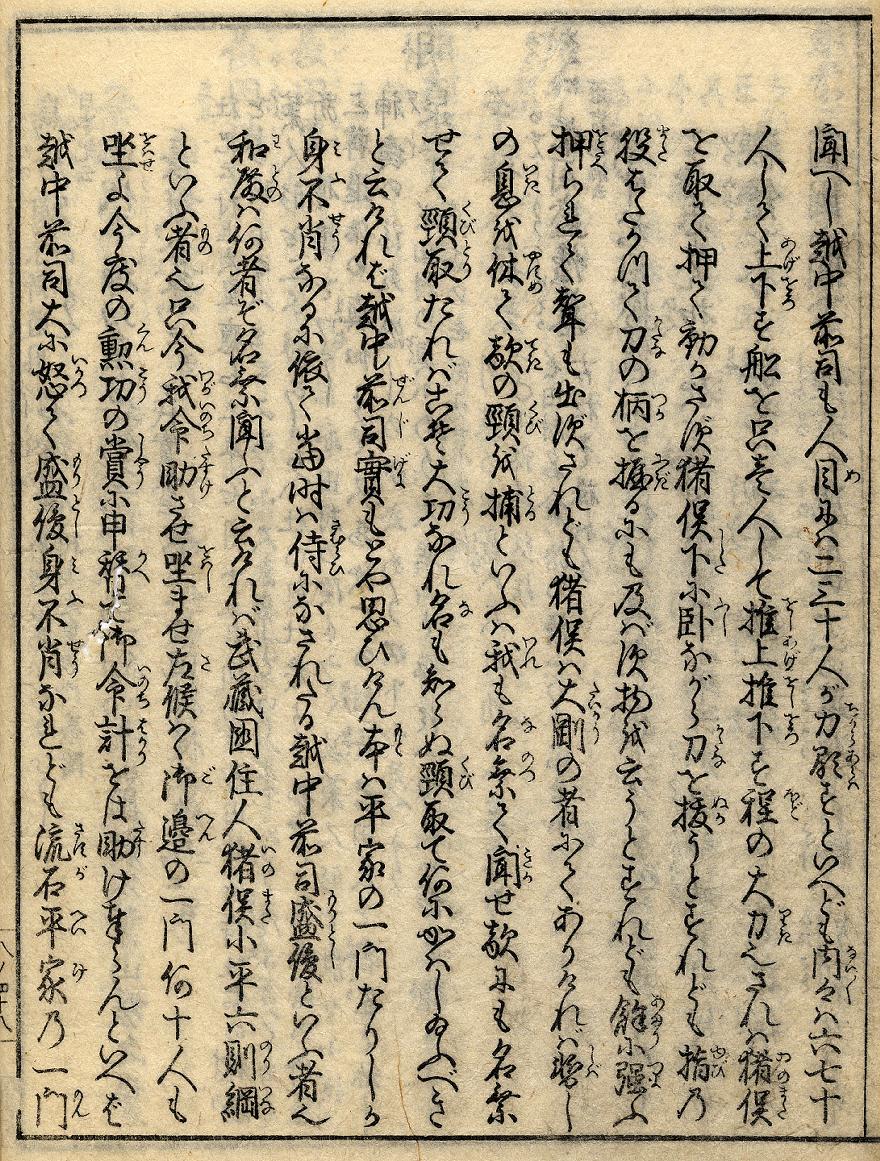 聞へし越中前司も人目にハ二三十人が力顕すといへども内々ハ六七十
人して上下す船を只壱人して推上推下す程の大力也されハ猪俣
を取て押て動かさず猪俣下に臥ながら刀を抜うとすれども指の
股はたかつて刀の柄を握るにも及ばず物を云うとすれども餘に強ふ
押られて聲も出ずされども猪俣ハ大剛の者にてありけれハ暫し
の息を休て敵の頸を捕といふハ我も名乗て聞せ敵にも名乗
せて頸取たれバこそ大功なれ名も知らぬ頸取て何にかハし給ふべき
と云けれバ越中前司實もとや思ひけん本ハ平家の一門たりしか
身不肖なるに依て當時ハ侍になされたる越中前司盛俊といふ者也
和殿ハ何者ぞ名乗聞ふと云けれバ武蔵国住人猪俣小平六則綱
といふ者也只今我命助させ坐ませ左候ハヾ御邉の一門何十人も
坐よ今度の勲功の賞に申替て御命計をは助け奉らんといへバ
越中前司大に怒て盛俊身不肖なれども流石平家の一門
八ノ四十八